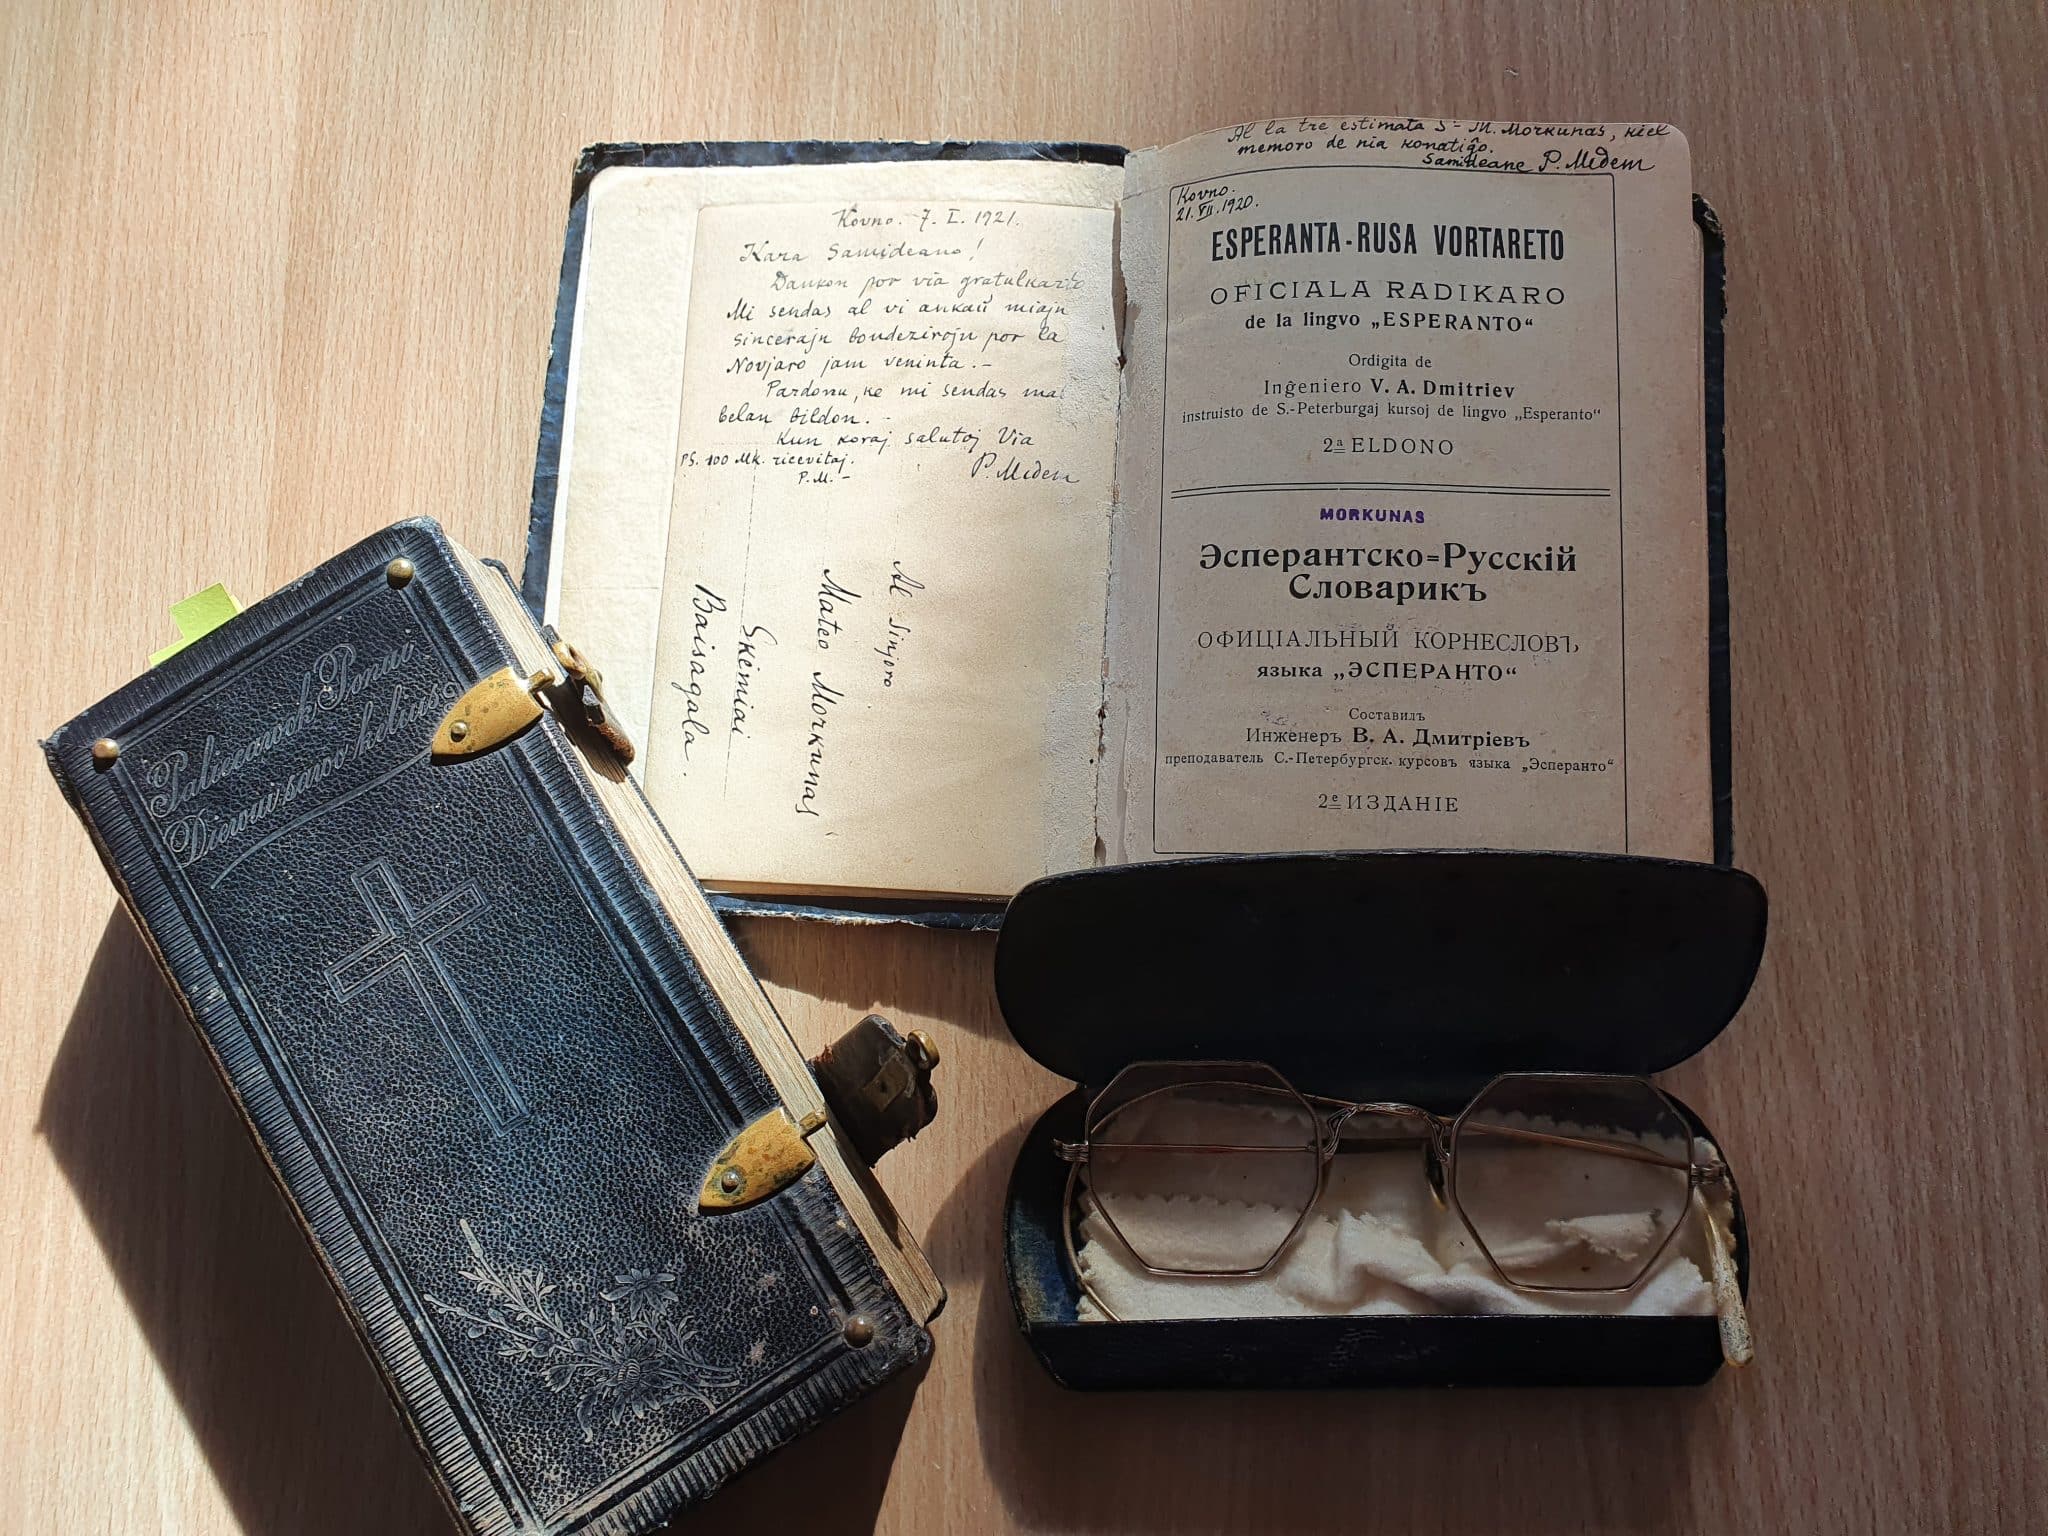 Kovno. 7. I. 1921.
Kara Samideano!
Dankon por via gratulkarto
Mi sendas al vi ankaŭ miajn
sincerajn bondezirojn por la
Novjaro jam veninta.-
Pardonu, ke mi sendas mal
belan bildon.-
Kun koraj salutoj Via
P. Medem
PS. 100 Mk. ricevitaj.
P.M.-
Al Sinjoro
Mateo Morkunas
Skėmiai
Baisagala.
Al la tre estimata S-ro M. Morkunas, kiel
memoro de nia konatiĝo.
Samideane P. Medem
Kovno.
21.VII.1920.
ESPERANTA-RUSA VORTARETO
OFICIALA RADIKARO
de la lingvo „ESPERANTO“
Ordigita de
Inĝeniero V. A. Dmitriev
instruisto de S.-Peterburgaj kursoj de lingvo „Esperanto“
2a ELDONO
MORKUNAS
Эсперантско=Русскій
Словарикъ
ОФИЦІАЛЬНЫЙ КОРНЕСЛОВЪ
языка „ЭСПЕРАНТО“
Составилъ
Инженеръ В. А. Дмитріевъ
преподаватель С.-Петербургск. курсовъ языка „Эсперанто“
2е ИЗДАНІЕ
Ponui